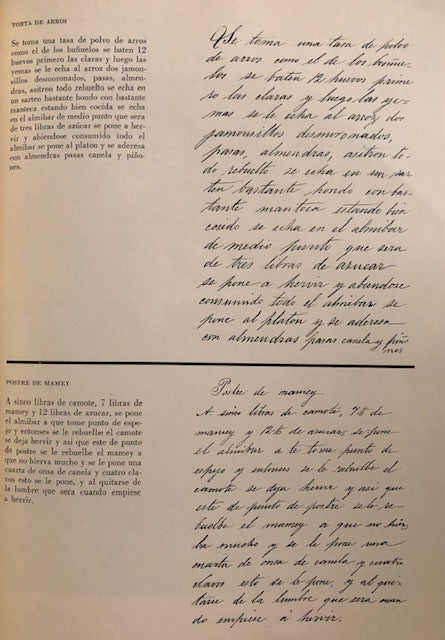 TORTA DE ARROS
Se toma una tasa de polvo de arros
como el de los buñuelos se baten 12
huevos primero las claras y luego las
yemas se le echa al arroz dos jamon-
sillos desmoronados, pasas, almen-
dras, asitron todo rebuelto se echa en
un sarten bastante hondo con bastante
manteca estando bien cocida se echa
en el almibar de medio punto que sera
de tres libras de azúcar se pone a her-
vir y abiéndose consumido todo el
almibar se pone al platon y se aderesa
con almendras pasas canela y piño-
nes.
Se toma una tasa de polvo
de arros como el de los buñue-
los se baten 12 huevos prime
ro las claras y luego las ye-
mas se le echa al arroz, dos
jamonsillos desmoronados,
pasas, almendras, asitron to-
do rebuelto se echa en un sar
ten bastante hondo con bas-
tante manteca estando bien
cosido se echa en el almibar
de medio punto que sera
de tres libras de azucar
se pone a hervir y abiendose
consumido todo el almibar se
pone al platon y se aderesa
con almendras pasas canela y piño
nes
POSTRE DE MAMEY
A sinco libras de camote, 7 libras de
mamey y 12 libras de azucar, se pone
el almibar a que tome punto de espe-
jo y entonses se le rebuelbe el camote
se deja hervir y asi que este de punto
de postre se le rebuelbe el mamey a
que no hierva mucho y se le pone una
cuarta de onsa de canela y cuatro cla-
vos esto se le pone, y al quitarse de
la lumbre que sera cuando empiese
a hervir.
Postre de mamey
A sinco libras de camote, 7 ℔ de
mamey y 12 ℔ de azucar, se pone
el almibar a q.e tome punto de
espejo y entonses se le rebuelbe el
camote se deja hervir y asi que
este de punto de postre se le re-
buelbe el mamey a que no hier
ba mucho y se le pone una
cuarta de onsa de canela y cuatro
clavos esto se le pone, y al qui-
tarse de la lumbre que sera cuan
do empiese á hervir.